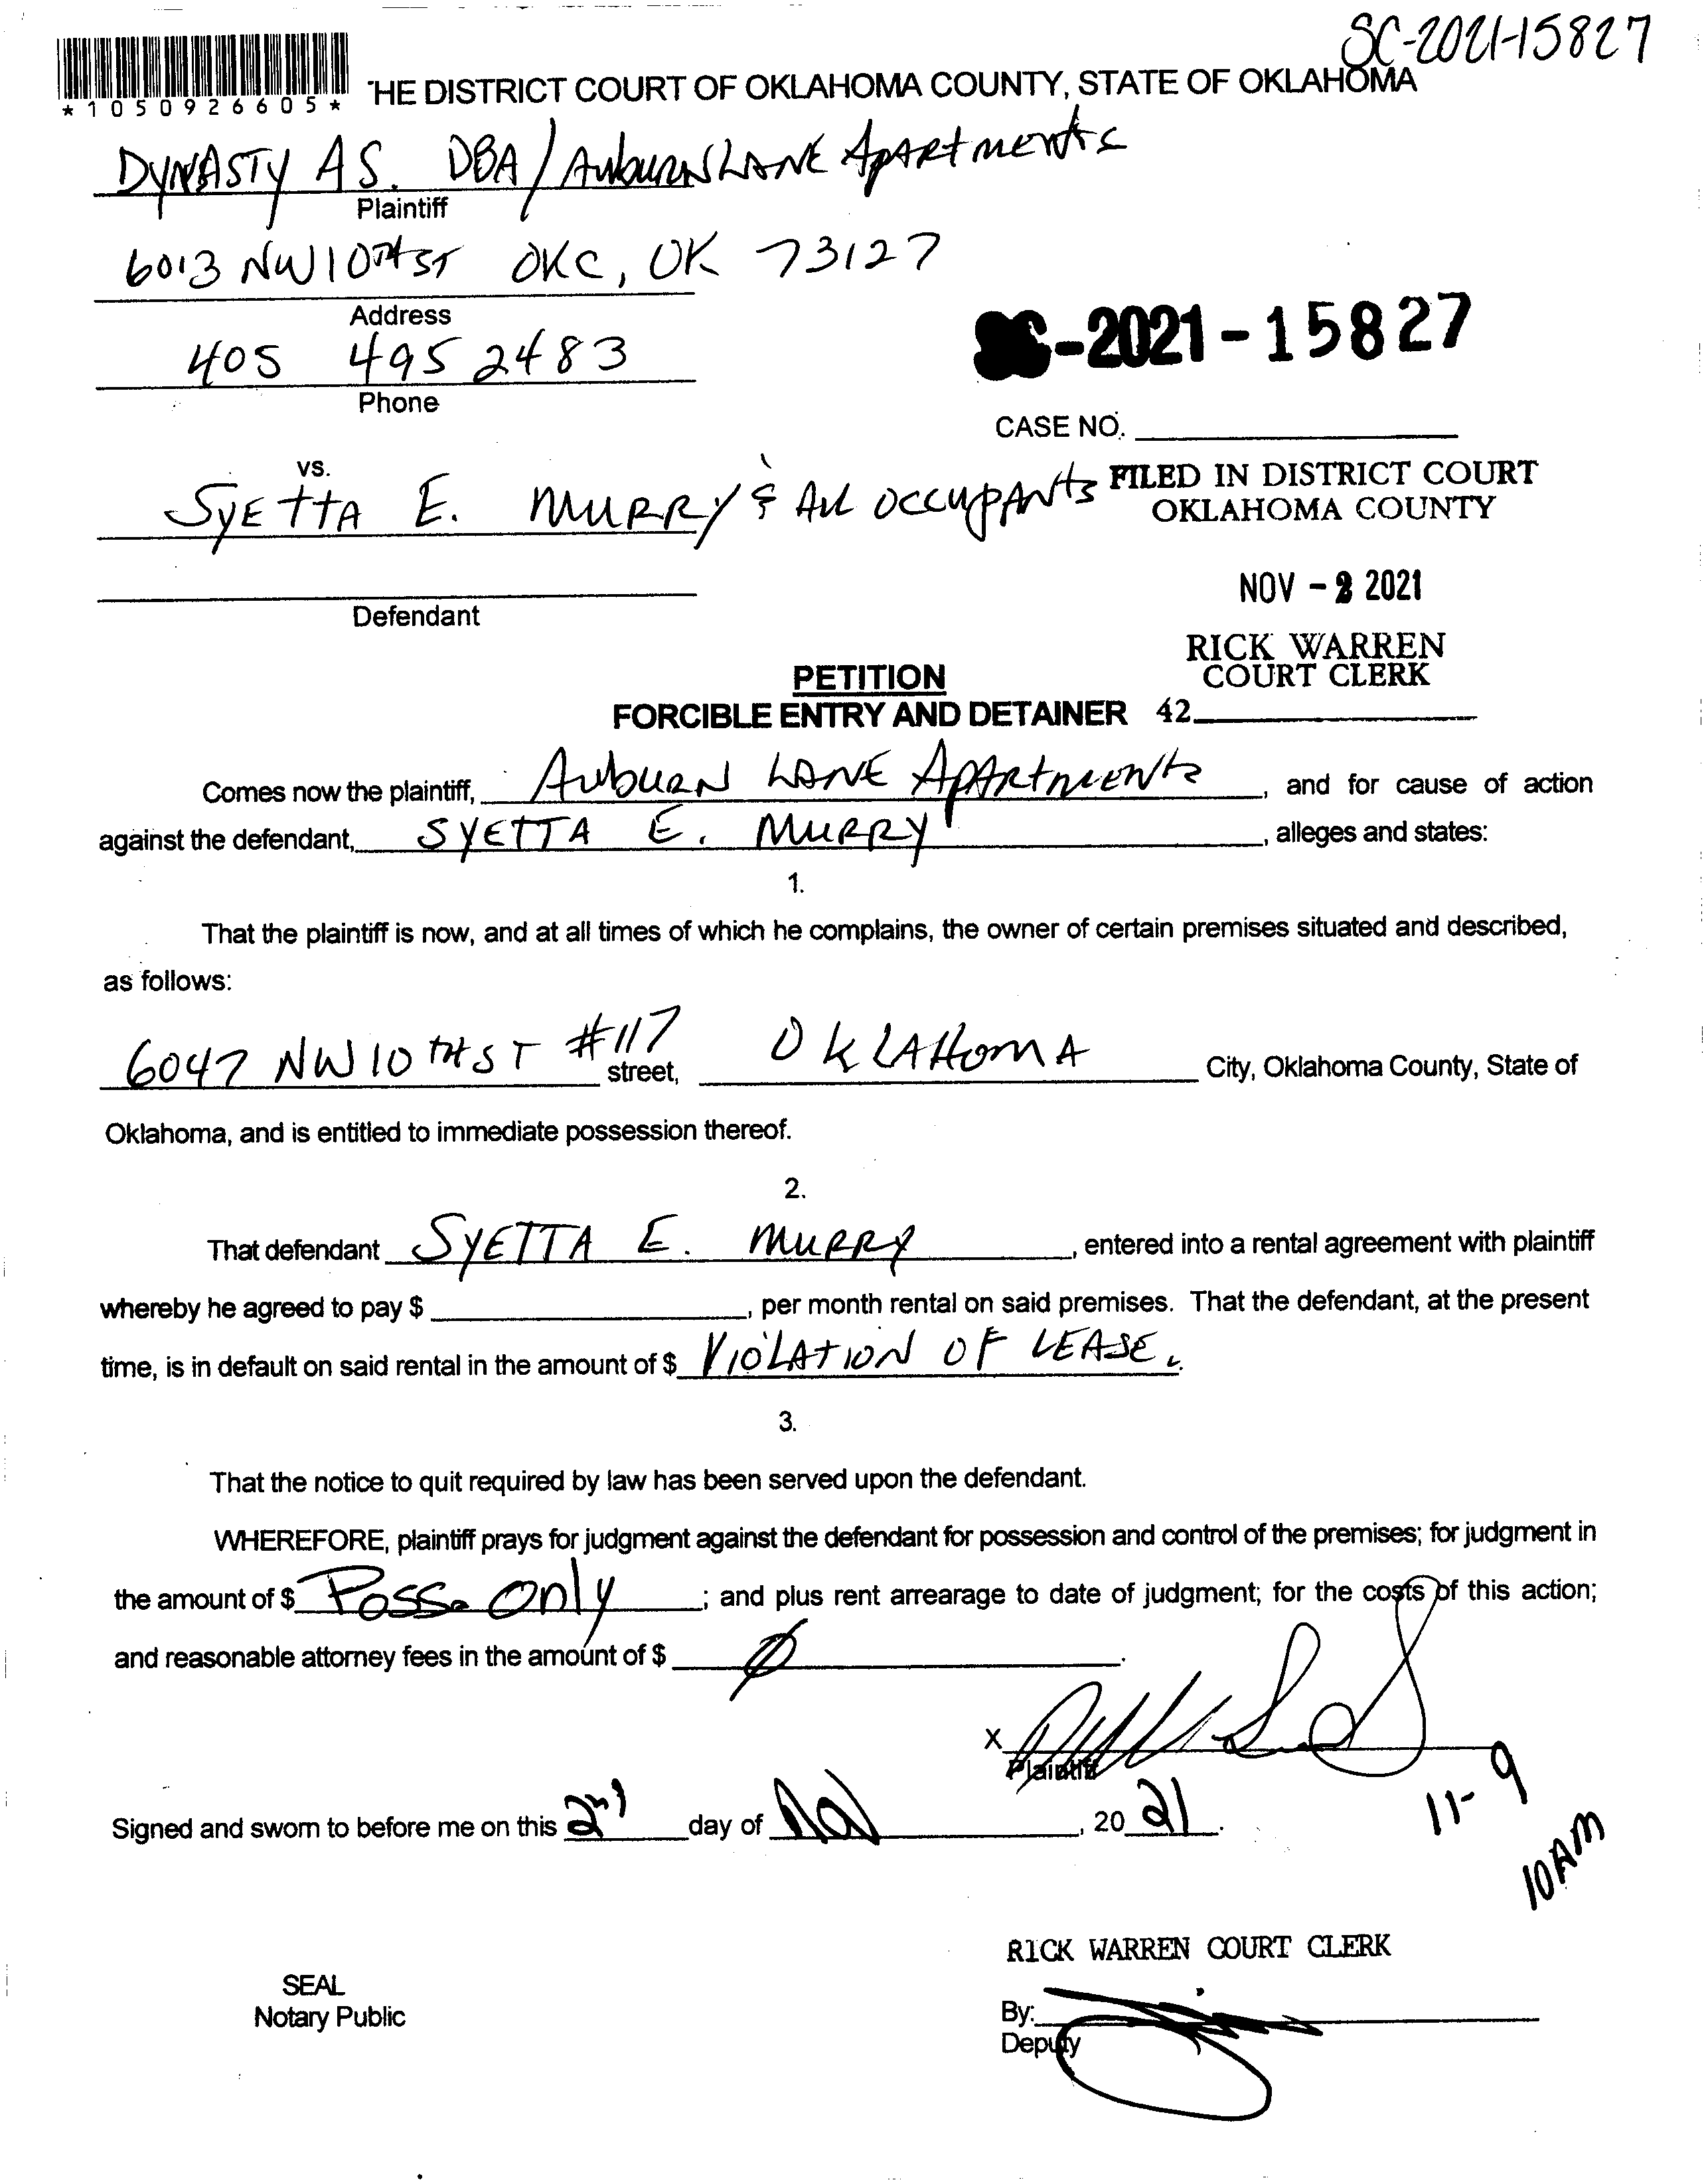 SC-2021-15827
*1050926605*
THE DISTRICT COURT OF OKLAHOMA COUNTY, STATE OF OKLAHOMA
DYNASTY AS. DBA/AuburN LANE ApARtments
Plaintiff
6013 NW 10TH ST OKC, OK 73127
Address
405 495 2483
Phone
SC-2021-15827
CASE NO.
vs.
SYEttA E. MURRY & All occupANts
FILED IN DISTRICT COURT
OKLAHOMA COUNTY
Defendant
NOV - 2 2021
RICK WARREN
COURT CLERK
PETITION
FORCIBLE ENTRY AND DETAINER 42
Comes now the plaintiff, AubuRN LANE ApARtments, and for cause of action
against the defendant, SYETTA E. MURRY, alleges and states:
1.
That the plaintiff is now, and at all times of which he complains, the owner of certain premises situated and described,
as follows:
6047 NW 10 TH ST #117 street, OKLAHOMA City, Oklahoma County, State of
Oklahoma, and is entitled to immediate possession thereof.
2.
That defendant SYETTA E. MURRY, entered into a rental agreement with plaintiff
whereby he agreed to pay $, per month rental on said premises. That the defendant, at the present
time, is in default on said rental in the amount of $ VIOLATION OF LEASE.
3.
That the notice to quit required by law has been served upon the defendant.
WHEREFORE, plaintiff prays for judgment against the defendant for possession and control of the premises; for judgment in
the amount of $ Poss. Only; and plus rent arrearage to date of judgment; for the costs of this action;
and reasonable attorney fees in the amount of $ Ø.
X
Plaintiff
Signed and sworn to before me on this 2nd day of Nov, 2021.
11-9
10AM
RICK WARREN COURT CLERK
SEAL
Notary Public
By:
Deputy